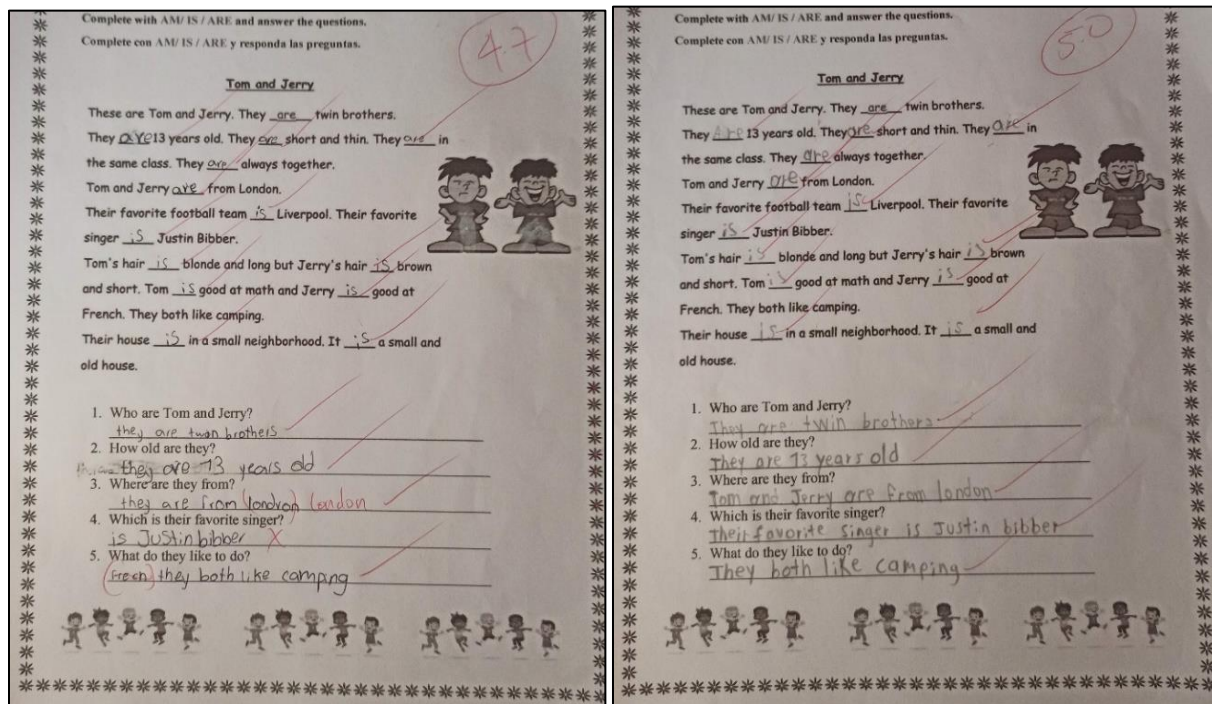 Complete with AM/ IS / ARE and answer the questions.
Complete con AM/ IS / ARE y responda las preguntas.
4.7
Tom and Jerry
These are Tom and Jerry. They are twin brothers.
They are 13 years old. They are short and thin. They are in
the same class. They are always together.
Tom and Jerry are from London.
Their favorite football team is Liverpool. Their favorite
singer is Justin Bibber.
Tom's hair is blonde and long but Jerry's hair is brown
and short. Tom is good at math and Jerry is good at
French. They both like camping.
Their house is in a small neighborhood. It is a small and
old house.
1. Who are Tom and Jerry?
they are twon brothers
2. How old are they?
they are 13 years old
3. Where are they from?
they are from (londron) London
4. Which is their favorite singer?
is Justin bibber X
5. What do they like to do?
(Frech) they both like camping
Complete with AM/ IS / ARE and answer the questions.
Complete con AM/ IS / ARE y responda las preguntas.
5.0
Tom and Jerry
These are Tom and Jerry. They are twin brothers.
They Are 13 years old. They are short and thin. They are in
the same class. They are always together.
Tom and Jerry are from London.
Their favorite football team is Liverpool. Their favorite
singer is Justin Bibber.
Tom's hair is blonde and long but Jerry's hair is brown
and short. Tom is good at math and Jerry is good at
French. They both like camping.
Their house is in a small neighborhood. It is a small and
old house.
1. Who are Tom and Jerry?
They are twin brothers
2. How old are they?
They are 13 years old
3. Where are they from?
Tom and Jerry are from london
4. Which is their favorite singer?
Their favorite singer is Justin bibber
5. What do they like to do?
They both like camping